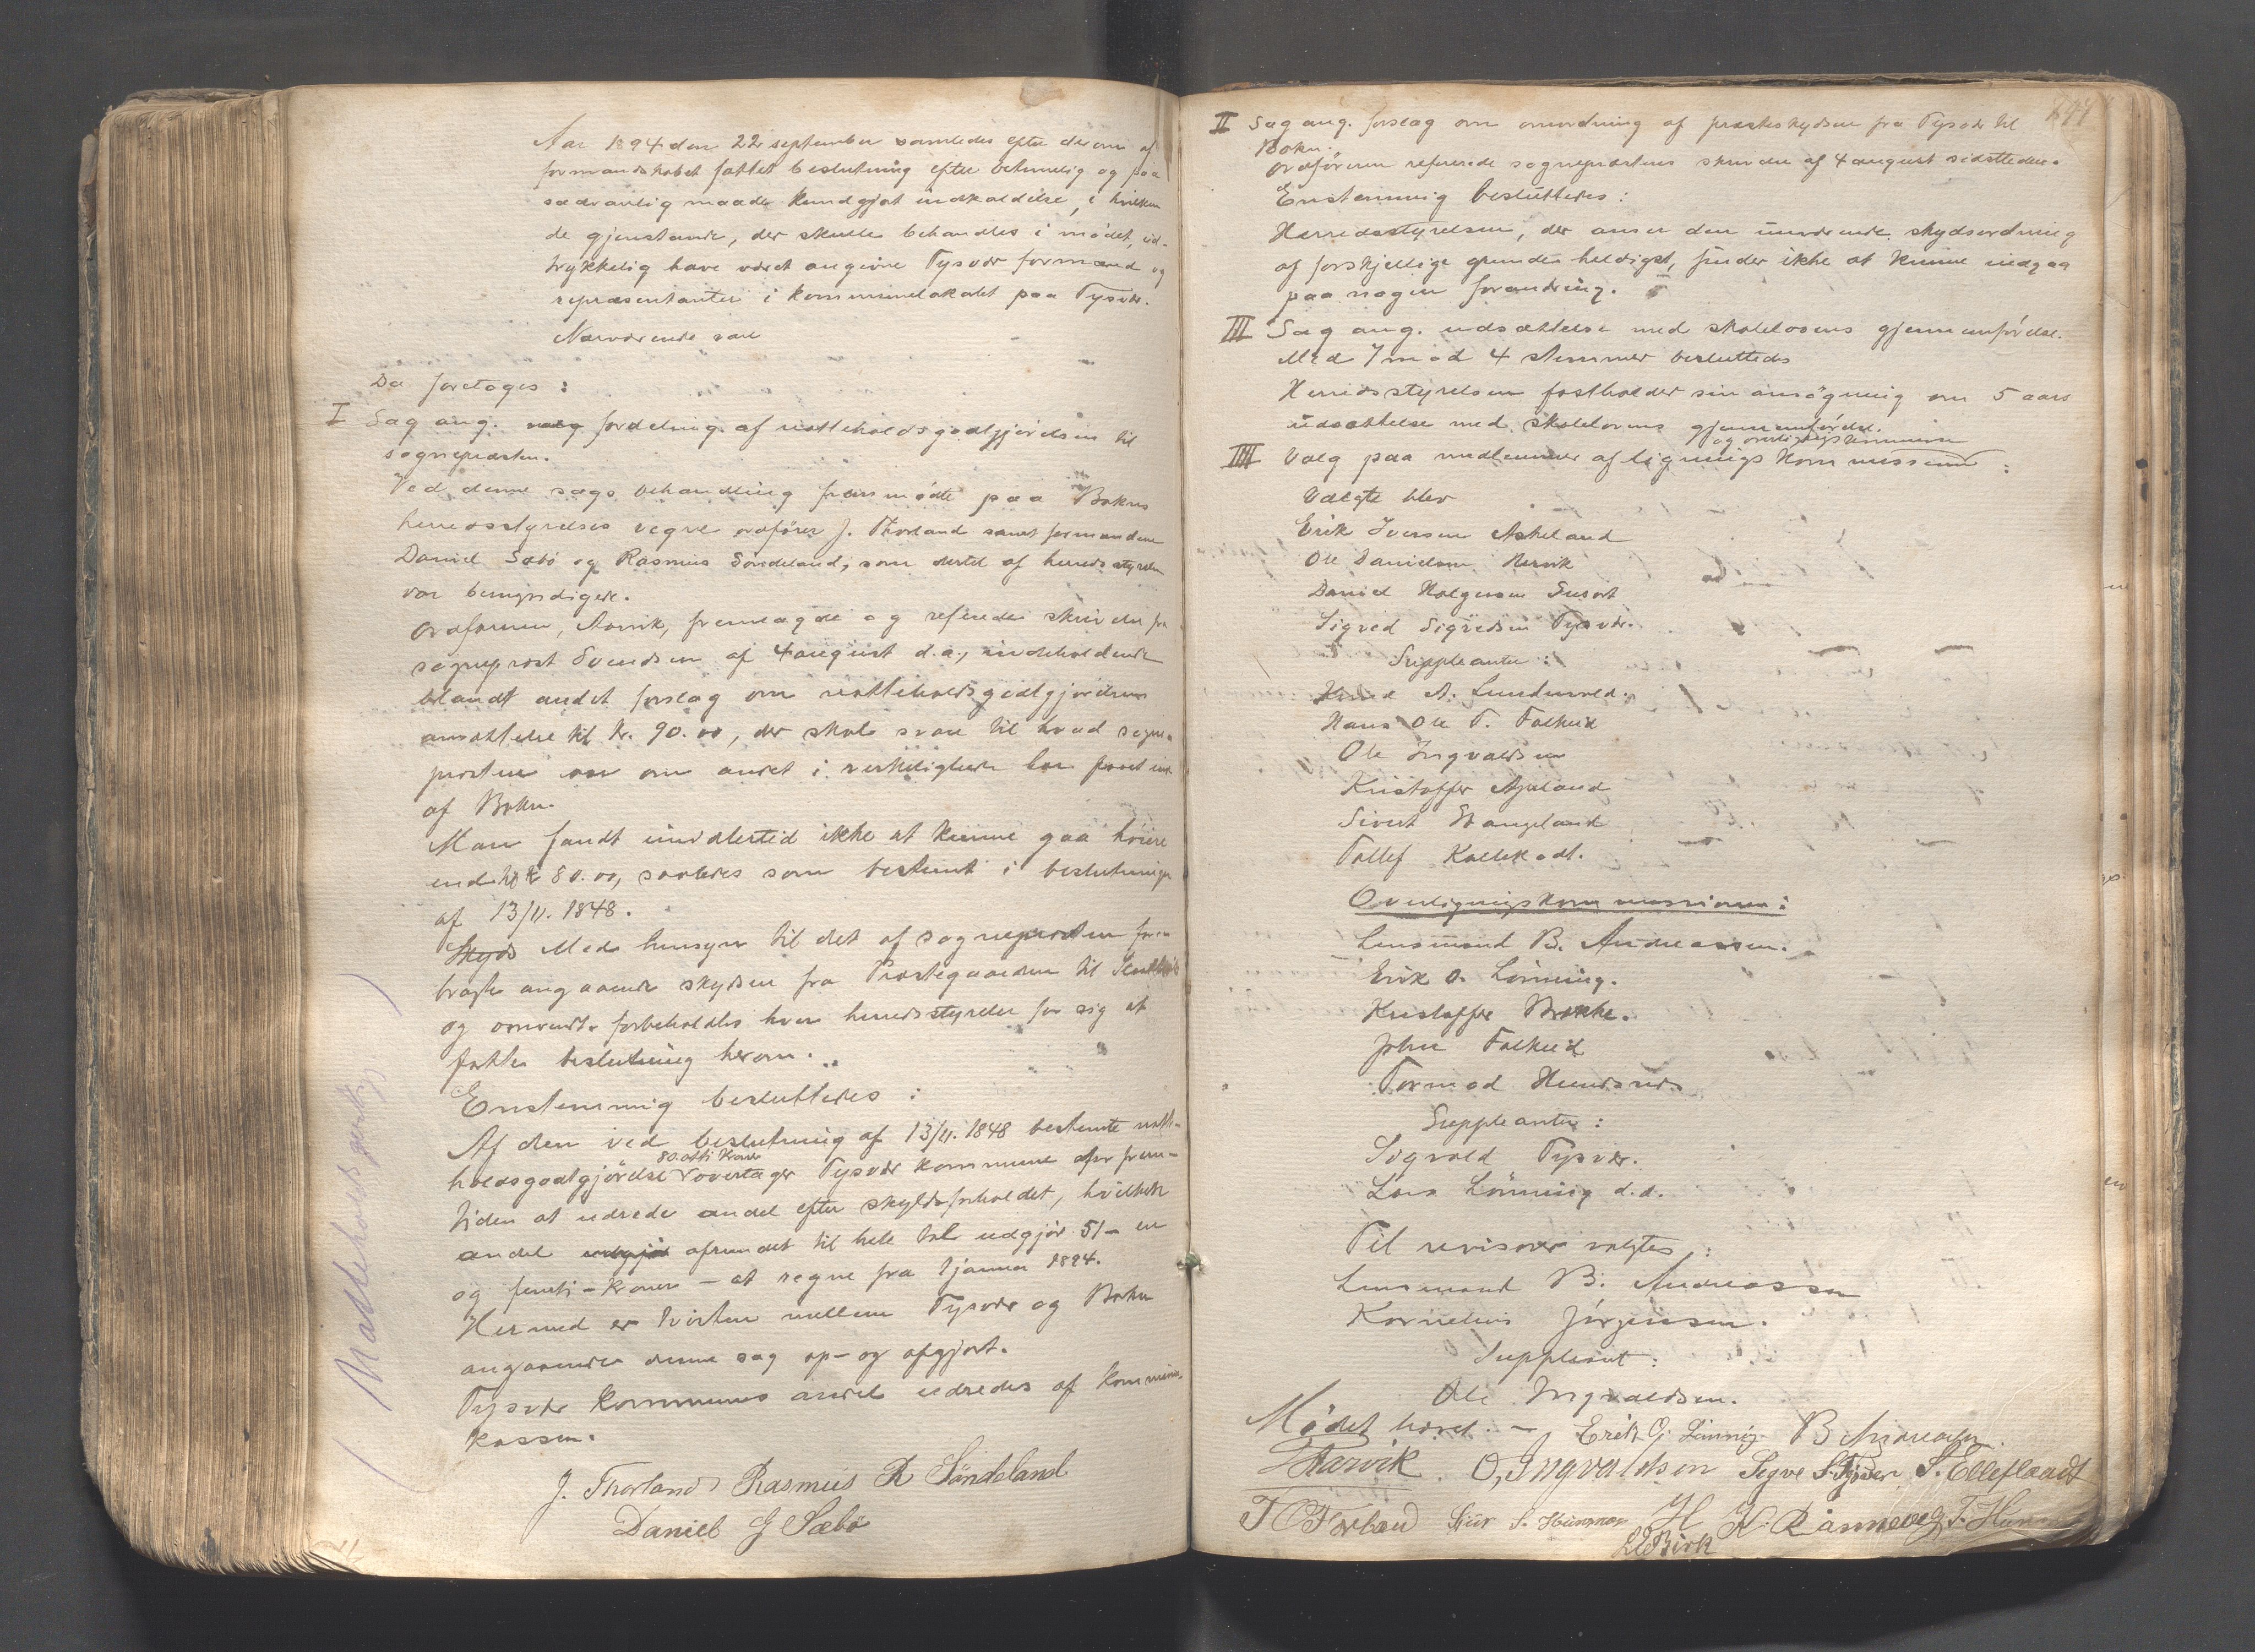 Aar 1894 den 22 september samledes efter derom af
formandskabet fattet beslutning efter betimelig og paa
sædvanlig maade kundgjort indkaldelse, i hvilken
de gjenstande, der skulle behandles i mødet, ud-
trykkelig have været angivne Tysvær formænd og
repræsentanter i kommunelokalet paa Tysvær.
Nærværende vare
Da foretoges:
I Sag ang. valg fordeling af natteholdsgodtgjørelsen til
sognepræsten.
Ved denne sags behandling fremmødte paa Bokns
herredsstyrelses vegne ordfører J. Thorland samt formændene
Daniel Sæbö og Rasmus Söndeland, som dertil af herredsstyrelsen
var bemyndigede.
Ordføreren, Aarvik, fremlagde og refererede skrivelse fra
sogneprest Svendsen af 4 august d.a., indeholdende
blandt andet forslag om natteholdsgodtgjørelsens
ansættelse til kr. 90.00, der skal svare til hvad sogne-
præsten om aaret i virkeligheden har faaet ind
af Bokn.
Man fandt imidlertid ikke at kunne gaa höiere
end til kr 80.00, saaledes som bestemt i beslutningen
af 13/11. 1848.
Skyds Med hensyn til det af sognepræsten frem-
bragte angaaende skydsen fra Præstegaarden til
og omvendt forbeholdes hver herredsstyrelse for sig at
fatte beslutning herom.
Enstemmig besluttedes:
Af den ved beslutning af 13/11. 1848 bestemte natte-
80 otti kroner
holdsgodtgjörelse overtager Tysvær kommune for frem-
tiden at udrede andel efter skyldforholdet, hvilken
andel udgjör afrundet til hele tal udgjör 51 – en
og femti – kroner – at regne fra 1 januar 1894.
Hermed er tvisten mellem Tysvær og Bokn
angaaende denne sag op- og afgjort.
Tysvær kommunes andel udredes af kommune-
kassen.
J. Thorland Rasmus R Söndeland
Daniel G Sæbö
( Natteholdsgodtg )
II Sag ang. forslag om omordning af præsteskydsen fra Tysvær til
Bokn.
Ordföreren refererede sognepræstens skrivelse af 4 august sidstleden.
Enstemmig besluttedes:
Herredsstyrelsen, der anser den nuværende skydsordning
af forskjellige grunde heldigst, finder ikke at kunne indgaa
paa nogen forandring.
III Sag ang. udsættelse med skolelovens gjennemförelse.
Med 7 mod 4 stemmer besluttedes
Herredsstyrelsen fastholder sin ansögning om 5 aars
udsættelse med skolelovens gjennemförelse.
og overligningskommissionen
IIII Valg paa medlemmer af ligningskommissionen:
Valgte blev
Erik Iversen Askeland
Ole Danielsen Hervik
Daniel Holgersen Susort
Sigved Sigvedsen Tysvær.
Suppleanter:
A. Lundevold.
Hans Ole T. Falkeid
Ole Ingvaldsen
Kristoffer Apeland
Sivert Stangeland
Tollef Kallekodt.
Overligningskommissionen:
Lensmand B. Andreassen.
Erik O. Lönning.
Kristoffer Brekke.
John Falkeid
Tormod Hundsnes
Suppleanter:
Sigvald Tysvær.
Lars Lönning d.d.
Til revisorer valgtes:
Lensmand B. Andreassen
Kornelius Jörgensen.
Suppleant:
Ole Ingvaldsen.
Mödet hævet. – Erik O. Lönning B Andreassen.
Aarvik. O, Ingvaldsen Segve S. Tysver S. Elleflaadt
T Førland Sjur S. H K. Ranneveg T. Hun
LBirk